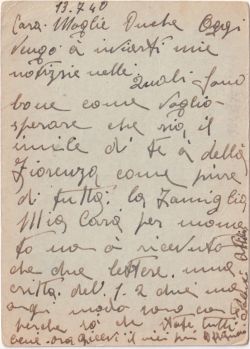 13.7.40
Cara Moglie Duche Oggi
vengo à inviarti mie
notizzie nelli
quali sono
bone come voglio
sperare che sia il
simile di te à della
Fiorenza come pure
di tutta la famiglia
Mia Cara per mome
to no à ricevuto
che due lettere una
critta del 1. 2 due ma
ogni modo sono con
perche so che state tutti
bene